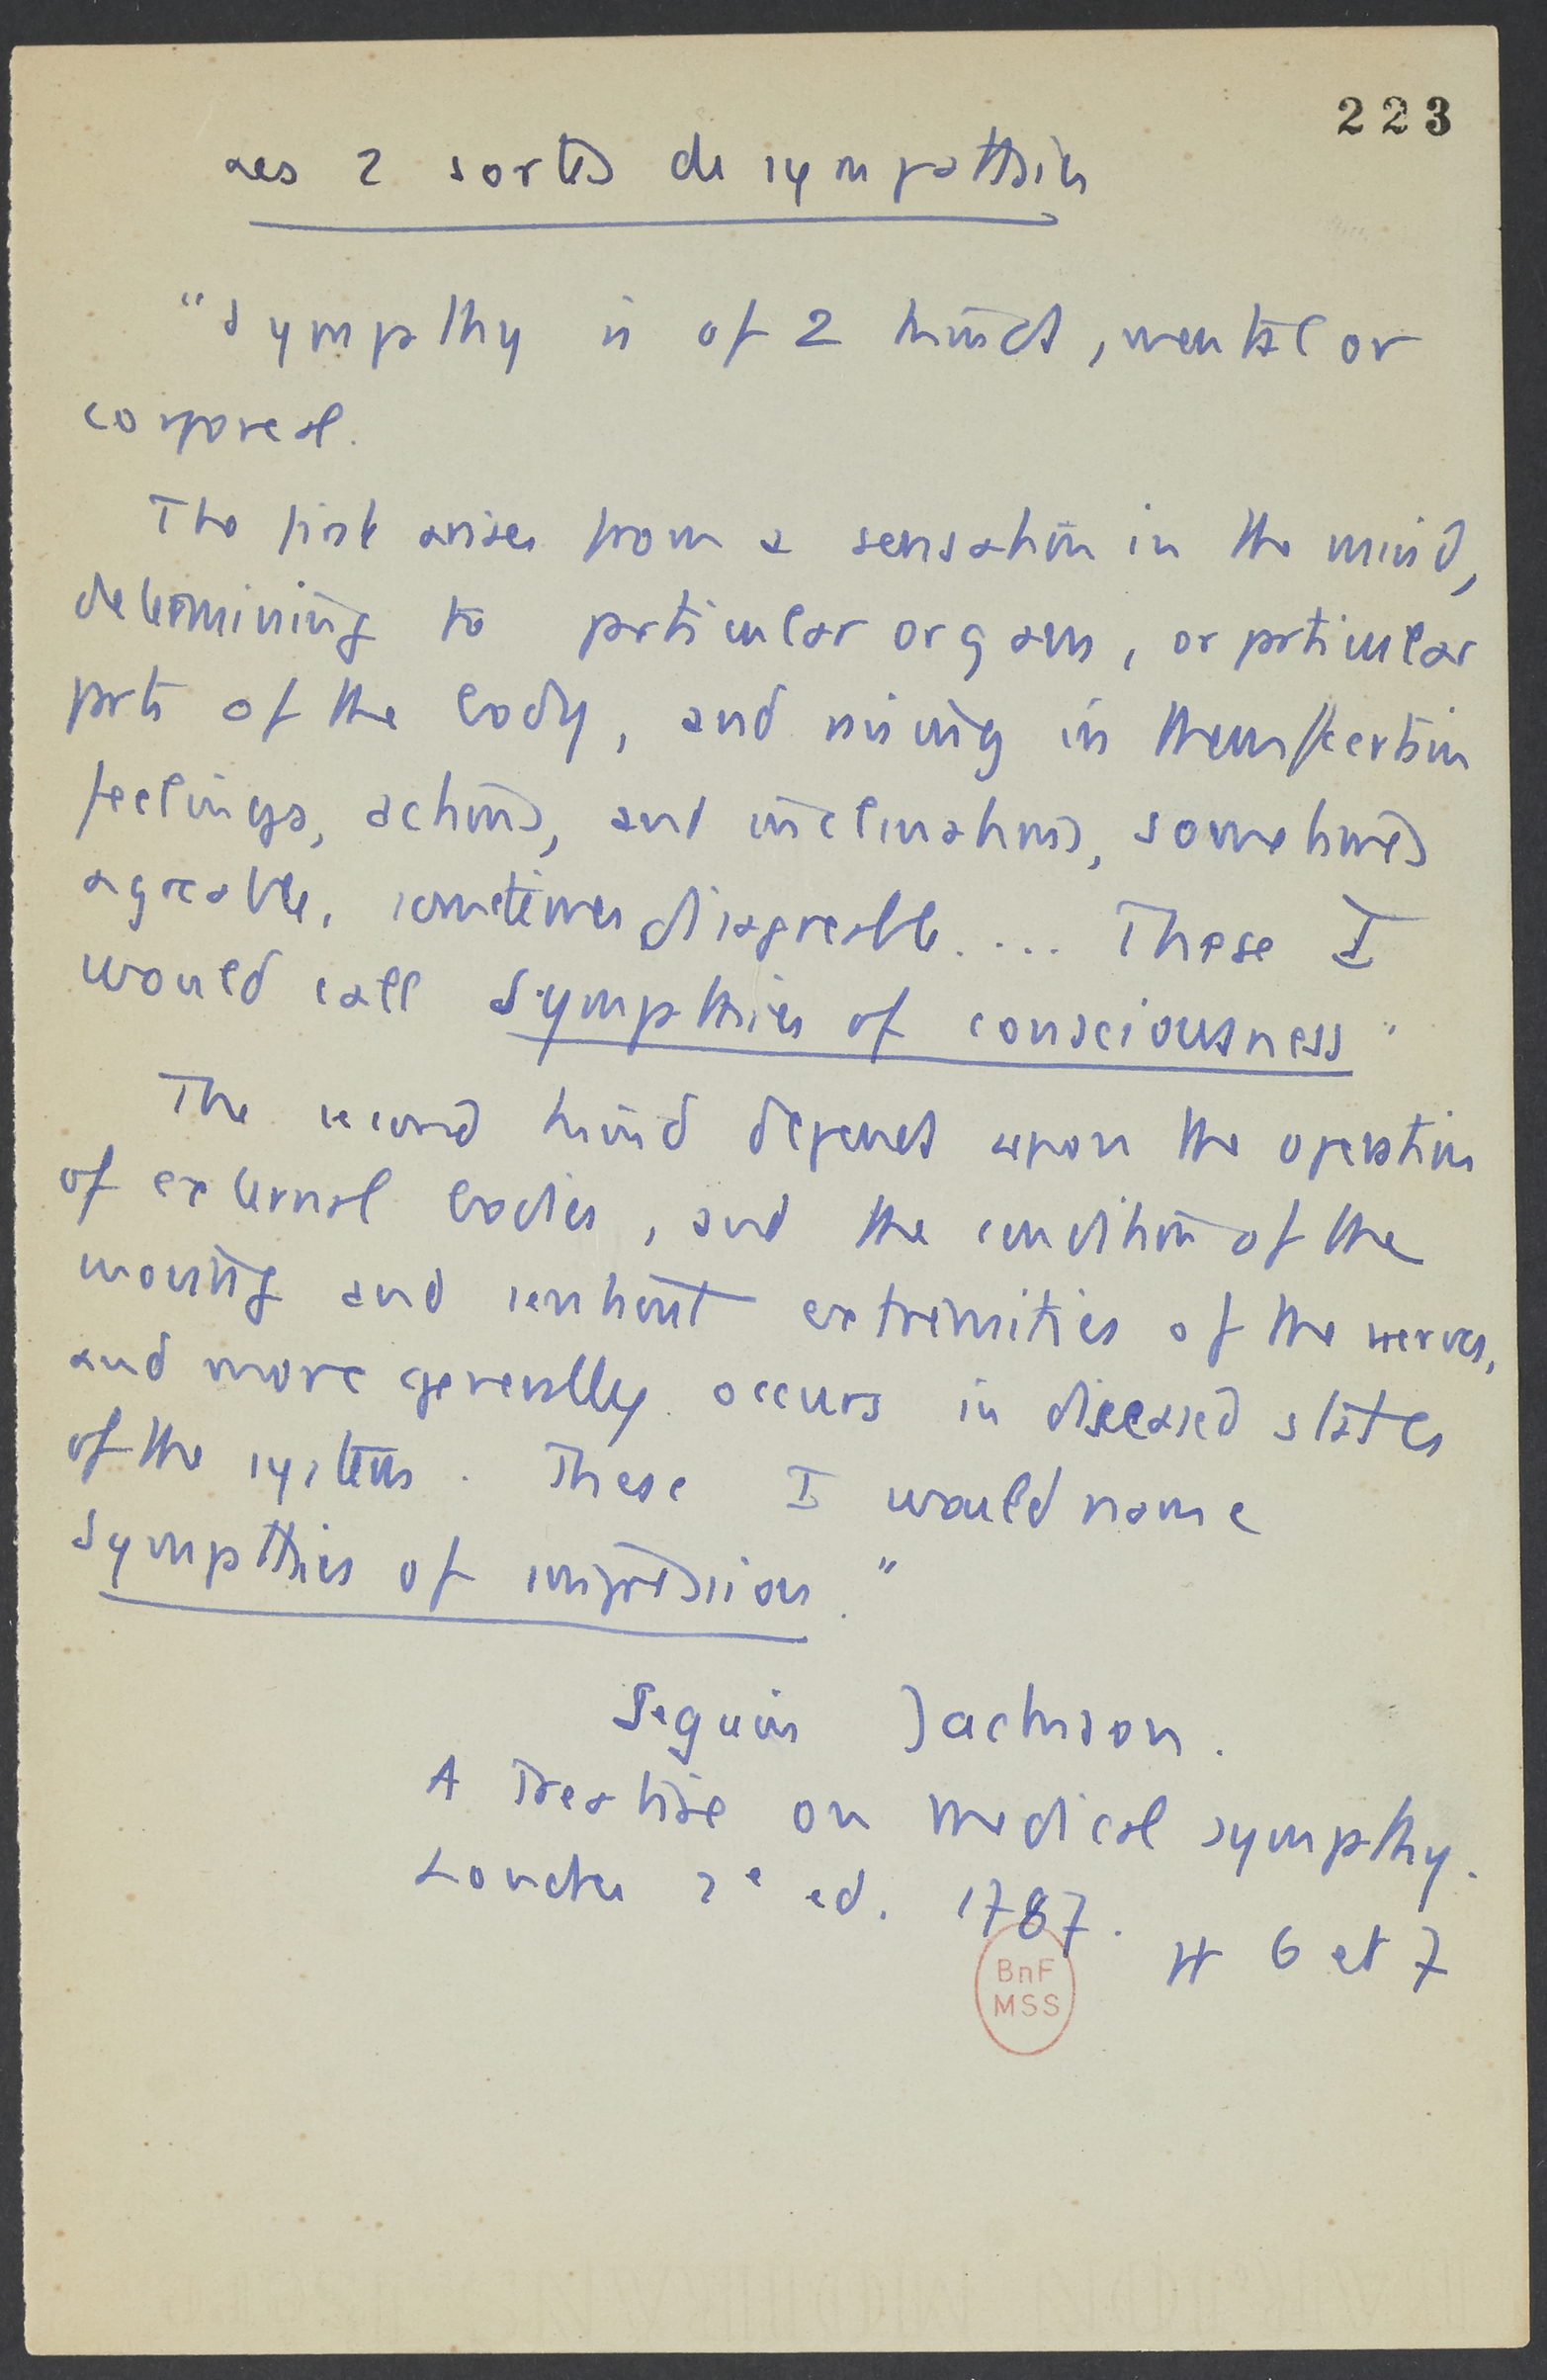 223
Les 2 sortes de sympathies
"Sympathy is of 2 kinds, mental or
corporeal.
The first arises from a sensation in the mind,
determining to particular organs, or particular
parts of the body, and raising in them certain
feelings, actions, and inclinations, sometimes
agreable, sometimes disagreable.... These I
would call Sympathies of consciousness"
The second kind depends upon the operation
of external bodies, and the condition of the
moving and sentient extremities of the nerves,
and more generally occurs in diseased states
of the system. These I would name
Sympathies of impression."
Seguin Jackson.
A Treatise on Medical sympathy.
Londres 2e ed. 1787. pp 6 et 7
BnF
MSS